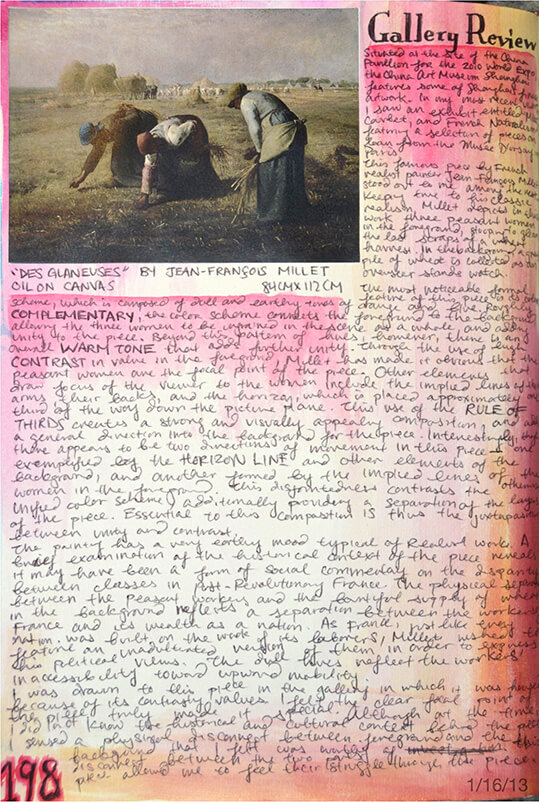 Gallery Review
Situated at the site of the China
Pavilion for the 2010 World Expo,
the China Art Museum Shanghai
features some of Shanghai's fine
artwork. In my most recent visit
I saw an exhibit entitled
Courbet, and French Naturalism
featuring a selection of pieces on
loan from the Musee D'orsay
Paris.
This famous piece by French
realist painter Jean-François Millet
stood out to me among the rest.
Keeping true to his classic
realism, Millet depicts in this
work three peasant women
in the foreground, stooping to glean
the last scraps of a wheat
harvest. In the background, a
pile of wheat is collected as an
overseer stands watch.
The most noticeable formal
feature of this piece is its color
"DES GLANEUSES" BY JEAN-FRANÇOIS MILLET
OIL ON CANVAS 84CM X 112CM
scheme, which is composed of dull and earthy tones of orange and blue. Roughly
COMPLEMENTARY, the color scheme connects the foreground to the background,
allowing the three women to be ingrained in the scene as a whole, and adding
unity to the piece. Beyond this pattern of hues, however, there is an
overall WARM TONE that adds further unity. Through the use of high
CONTRAST in value in the foreground, Millet has made it obvious that the
peasant women are the focal point of the piece. Other elements that
draw focus of the viewer to the women include the implied lines of the
arms, their backs, and the horizon, which is placed approximately one
third of the way down the picture plane. This use of the RULE OF
THIRDS creates a strong and visually appealing composition, and adds
a general direction into the background for the piece. Interestingly, though
there appears to be two directions of movement in this piece - one
exemplified by the HORIZON LINE and other elements of the
background, and another formed by the implied lines of the
women in the foreground. This disjointedness contrasts the otherwise
unified color scheme, additionally providing a separation of the layers
of the piece. Essential to this composition is thus the juxtaposition
between unity and contrast.
The painting has a very earthy mood typical of Realist works. A
brief examination of the historical context of the piece reveals
it may have been a form of social commentary on the disparity
between classes in Post-Revolutionary France. The physical separation
between the peasant workers and the bountiful supply of wheat
in the background reflects a separation between the workers of
France and its wealth as a nation. As France, just like every
nation, was built on the work of its laborers, Millet wished to
feature an unadulterated version of them, in order to express
his political views. The dull hues reflect the workers'
inaccessibility toward upward mobility.
I was drawn to this piece in the gallery in which it was hung
because of its contrasting values. I felt the clear focal point of
the piece truly made it special. Although at the time
I did not know the historical and cultural context behind the piece,
I sensed a physical disconnect between foreground and the
background that I felt was worthy of investigation. This
disconnect between the two parts of the
piece allowed me to feel their struggle through the piece.
198
1/16/13